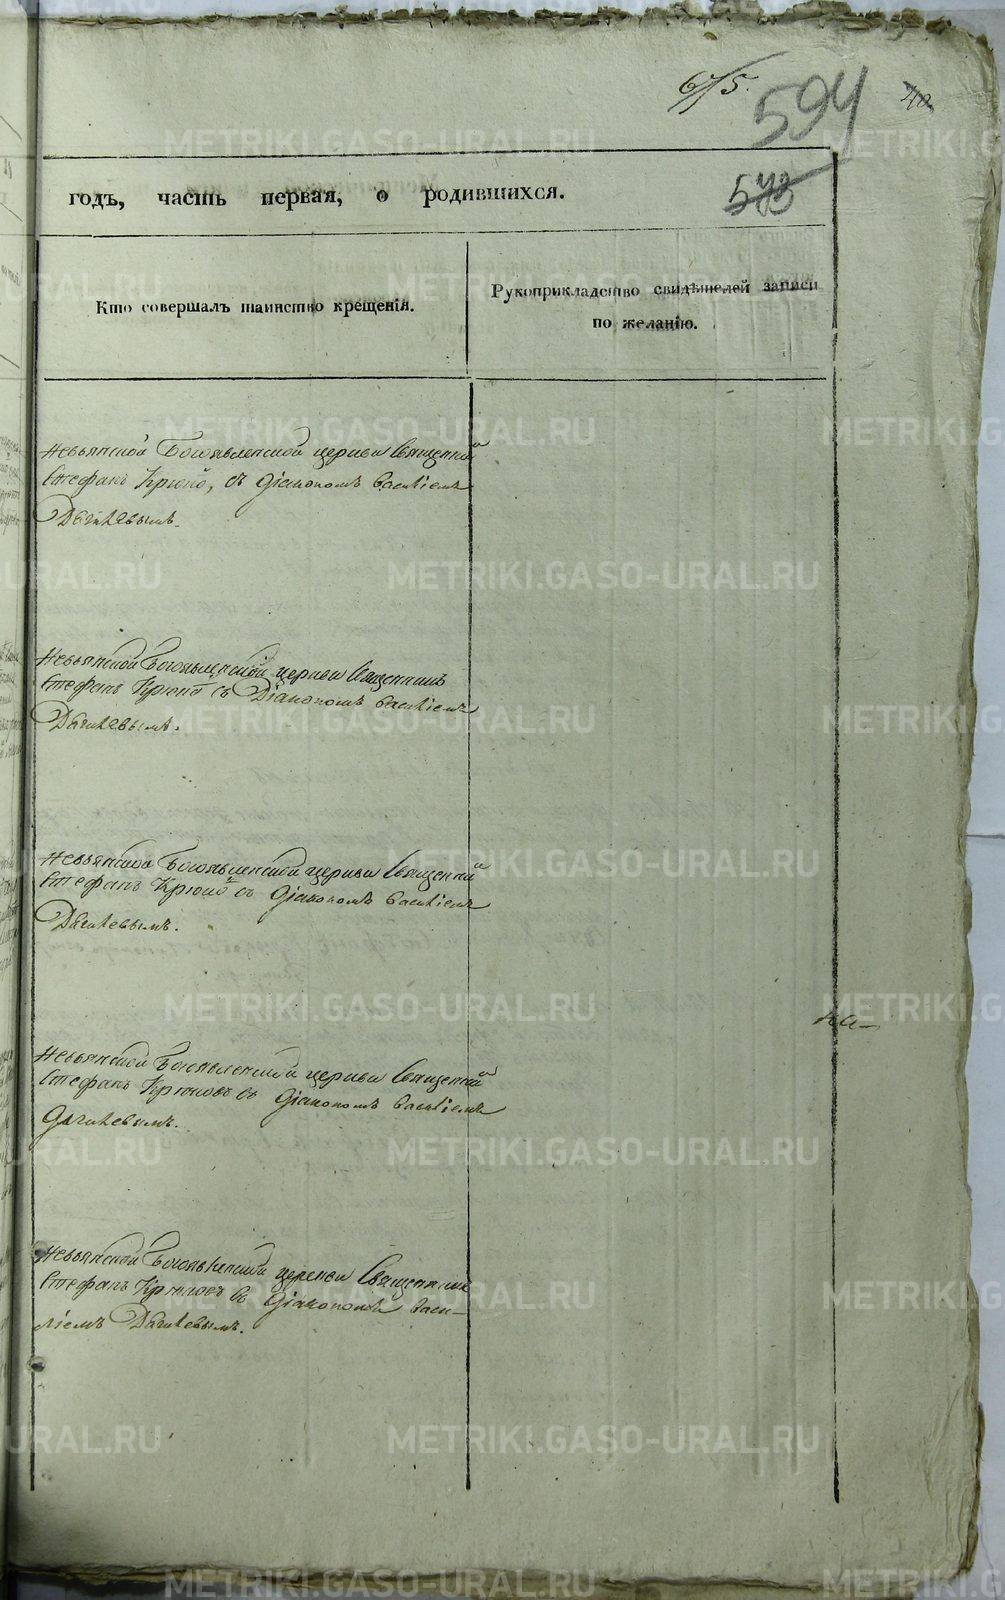 675.
594
40
573
годъ, часть первая, о родившихся.
Кто совершалъ таинство крещенія.
Рукоприкладство свидѣтелей записи
по желанію.
Невьянской Богоявленской церкви Священни
Стефанъ Крюко, съ Діакономъ Василіемъ
Невьянской Богоявленской церкви Священникъ
Стефанъ Крюко съ Діакономъ Василіемъ
Невьянской Богоявленской церкви Священни
Стефанъ Крюко съ Діакономъ Василіемъ
Невьянской Богоявленской церкви Священни
Стефанъ Крюковъ съ Діакономъ Василіемъ
Невьянской Богоявленской церкви Священникъ
Стефанъ Крюковъ съ Діакономъ Васи-
ліемъ
METRIKI.GASO-URAL.RU